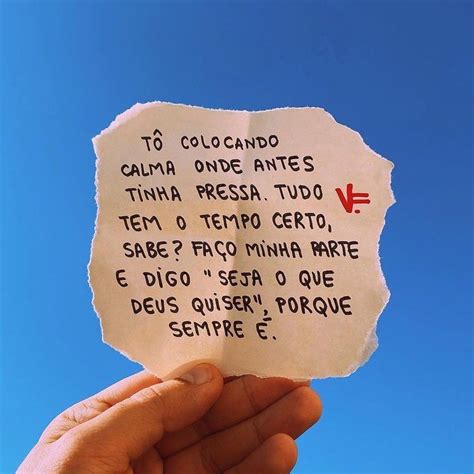 TÔ COLOCANDO
CALMA ONDE ANTES
TINHA PRESSA. TUDO
TEM O TEMPO CERTO,
SABE? FAÇO MINHA PARTE
E DIGO "SEJA O QUE
DEUS QUISER", PORQUE
SEMPRE É.
VF